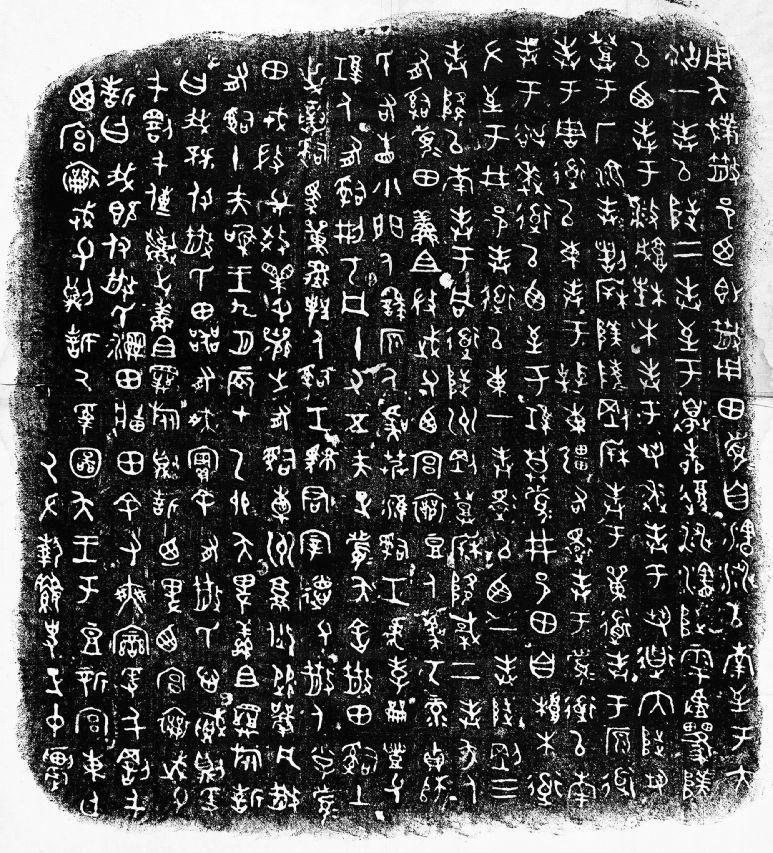 用夨𢽾散邑乃即散用田眉自瀗涉以南至于大
沽一封以陟二封至于邊柳復涉瀗陟雩
以西封于敝城楮木封于芻逨封于芻道內陟芻
登于厂湶封剖陵剛封于道封于原道
封于周道以東封于東疆右還封于眉道以南
封于逨道以西至于堆莫眉井邑田自桹木道
左至于井邑封道以東一封還以西一封陟剛三
封降以南封于同道陟州剛登降棫二封夨人
有司眉田鮮且微武父西宮襄豆人虞丂彔貞師
氏右眚小門人繇原人虞艿淮司工虎孝龠豐父
堆人有司刑丂凡十又五夫正眉夨舍散田司土
逆寅司馬單邦人司工君宰德父散人小子
眉田戎微父效父襄之有司橐州就焂從凡散
有司十夫唯王九月辰在乙卯夨卑鮮且旅誓
曰我既付散氏田器有爽實余有散氏心賊則爰
千罰千傳棄之鮮且旅則誓乃卑西宮襄武父
誓曰我既付散氏濕田畛田余有爽變爰千罰千
西宮襄武父則誓厥受圖夨王于豆新宮東廷
厥左執史正中農